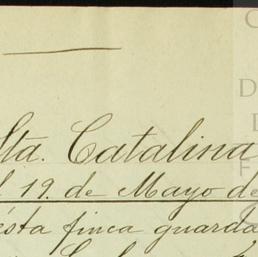 Sta. Catalina
19. de Mayo de
ésta finca guarda